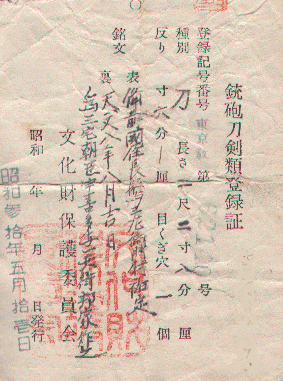 銃砲刀剣類登録証
登録記号番号 東京教 第 号
種別 刀 長さ 尺二寸八分 厘
反り 寸六分 厘 目くぎ穴 一個
銘文 表 備前國住長船 祐定
裏 天文八年八月吉日
為三宅朝臣 作之
文化財保護委員会
昭和 年 月 日発行
昭和参拾年五月拾壱日